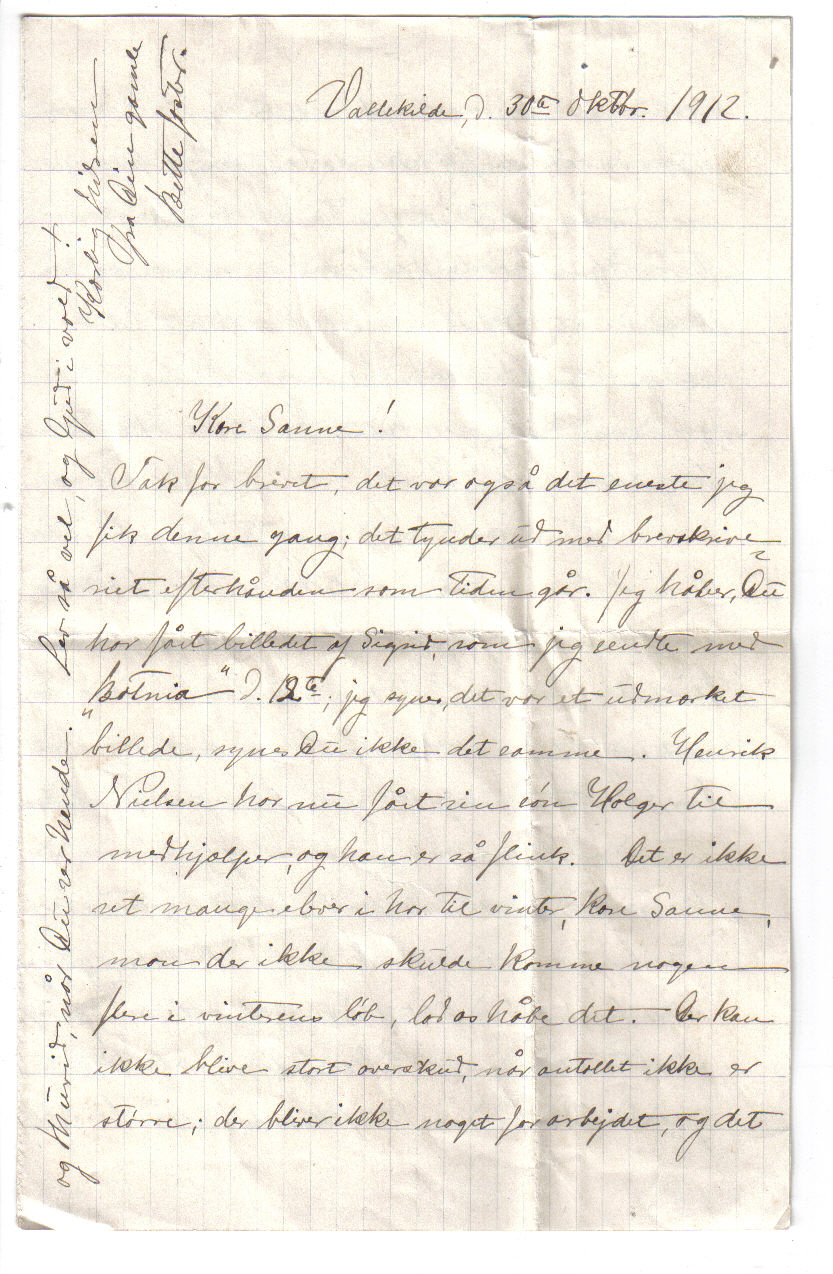 Vallekilde, d. 30te Oktbr. 1912.
Kære Sanne!
Tak for brevet, det var også det eneste jeg
fik denne gang; det tynder ud med brevskrive
riet efterhånden som tiden går. Jeg håber, Du
har fået billedet af Sigrid, som jeg sendte med
"Botnia" d. 12te; jeg synes, det var et udmærket
billede, synes Du ikke det samme. Henrik
Nielsen har nu fået sin søn Holger til
medhjælper, og han er så flink. Det er ikke
ret mange elever i har til vinter, kære Sanne,
mon der ikke skulde komme nogen
flere i vinterens løb, lad os håbe det. Der kan
ikke blive stort overskud, når antallet ikke er
større; der bliver ikke noget for arbejdet, og det
og Thurid, når Du ser hende. Lev så vel, og Gud i vold!
Kærlig hilsen
fra Din gamle